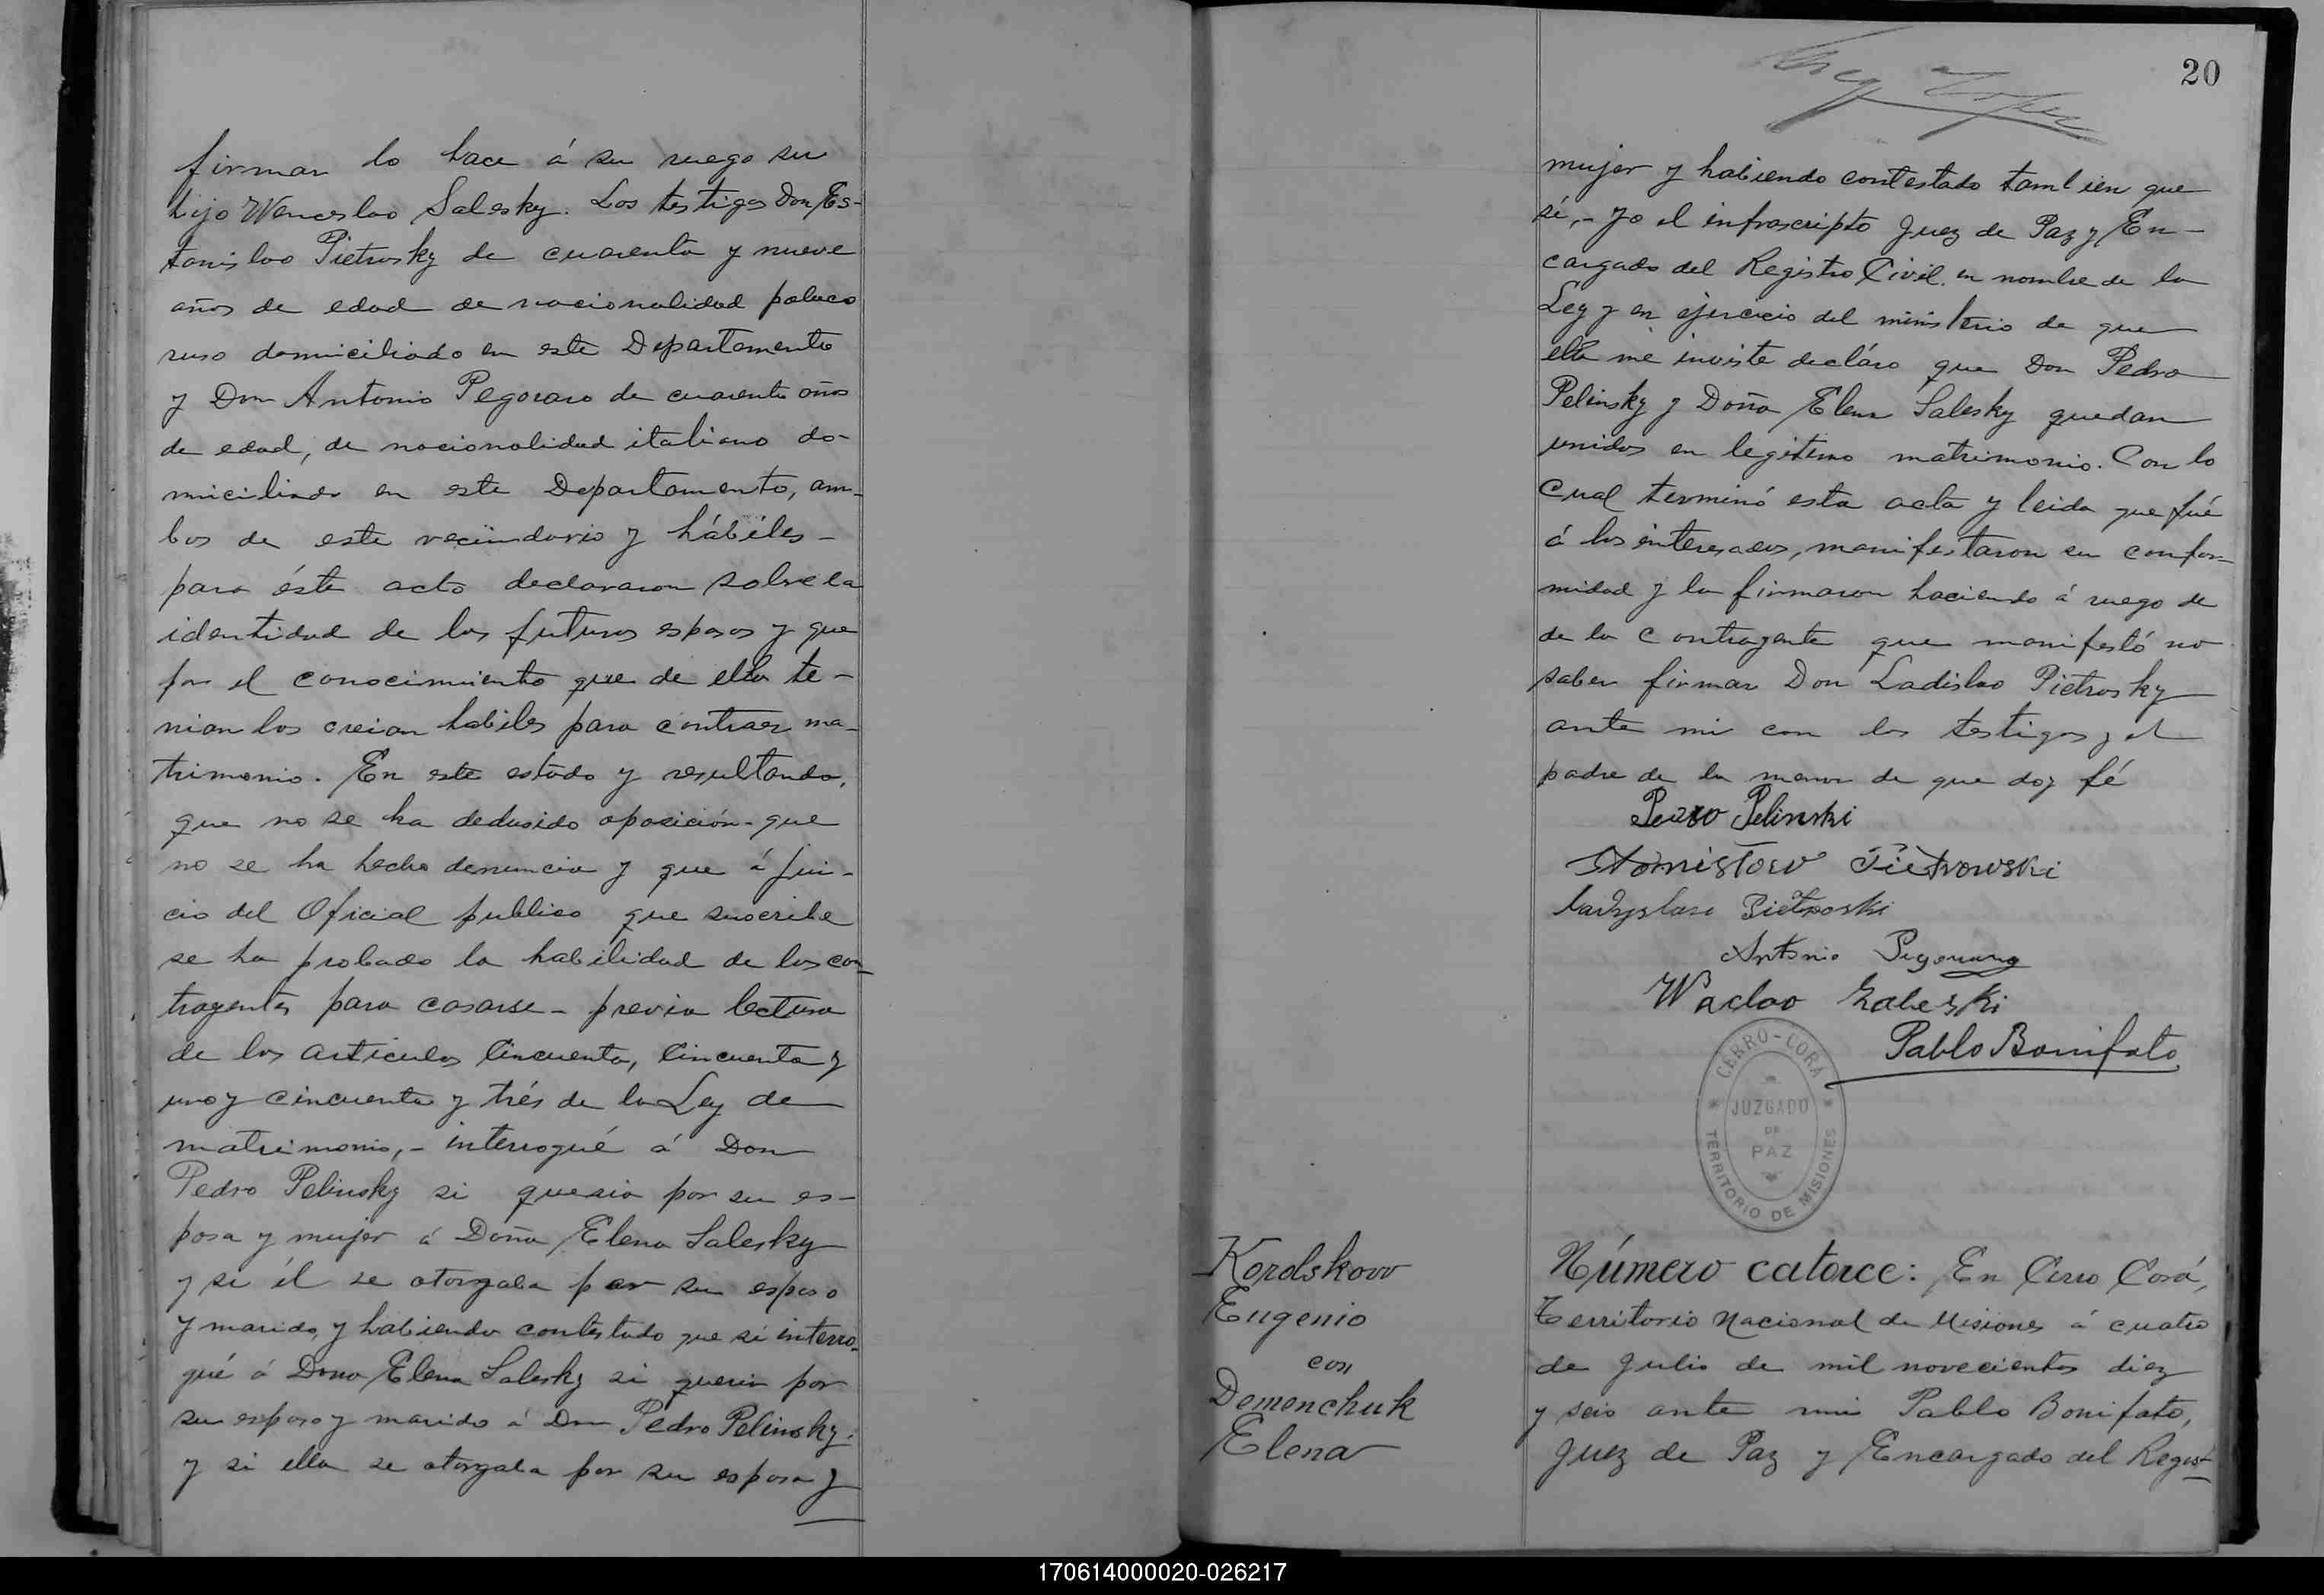 firmar lo hace á su ruego su
hijo Wenceslao Salesky. Los testigos Don Es-
tanislao Pietrosky de cuarenta y nueve
años de edad de nacionalidad polaco
ruso domiciliado en este Departamento
y Don Antonio Pegoraro de cuarenta años
de edad, de nacionalidad italiano do-
miciliado en este Departamento, am-
bos de este vecindario y hábiles -
para éste acto declararon sobre la
identidad de los futuros esposos y que
por el conocimiento que de ellos te-
nian los creian habiles para contraer ma-
trimonio. En este estado y resultando,
que no se ha deducido oposición - que
no se ha hecho denuncia y que á jui-
cio del Oficial publico que suscribe
se ha probado la habilidad de los con-
trayentes para casarse - previa lectura
de los articulos cincuenta, cincuenta y
uno y cincuenta y trés de la Ley de
matrimonio, - interrogué á Don
Pedro Pelinsky si queria por su es-
posa y mujer á Doña Elena Salesky
y si él se otorgaba por su esposo
y marido, y habiendo contestado que si interro-
gué á Dona Elena Salesky si queria por
su esposo y marido á Don Pedro Pelinsky.
y si ella se otorgaba por su esposa y
20
mujer y habiendo contestado tambien que
sí, - yo el infrascripto Juez de Paz y En-
cargado del Registro Civil en nombre de la
Ley y en ejercicio del ministerio de que
ella me inviste decláro que Don Pedro
Pelinsky y Doña Elena Salesky quedan
unidos en legitimo matrimonio. Con lo
cual terminó esta acta y leida que fué
á los interesados, manifestaron su confor-
midad y la firmaron haciendo á ruego de
de la contrayente que manifestó no
saber firmar Don Ladislao Pietrosky
ante mi con los testigos y el
padre de la menor de que doy fé
Pedro Pelinski
Stanisław Pietrowski
Ladyslao Pietroski
Antonio Pegoraro
Waclao Zaleski
Pablo Bonifato
CERRO-CORA
JUZGADO
DE
PAZ
TERRITORIO DE MISIONES
Korolskow
Eugenio
con
Demenchuk
Elena
Número catorce: En Cerro Corá,
Territorio Nacional de Misiones á cuatro
de Julio de mil novecientos diez
y seis ante mi Pablo Bonifato,
Juez de Paz y Encargado del Regist-
170614000020-026217